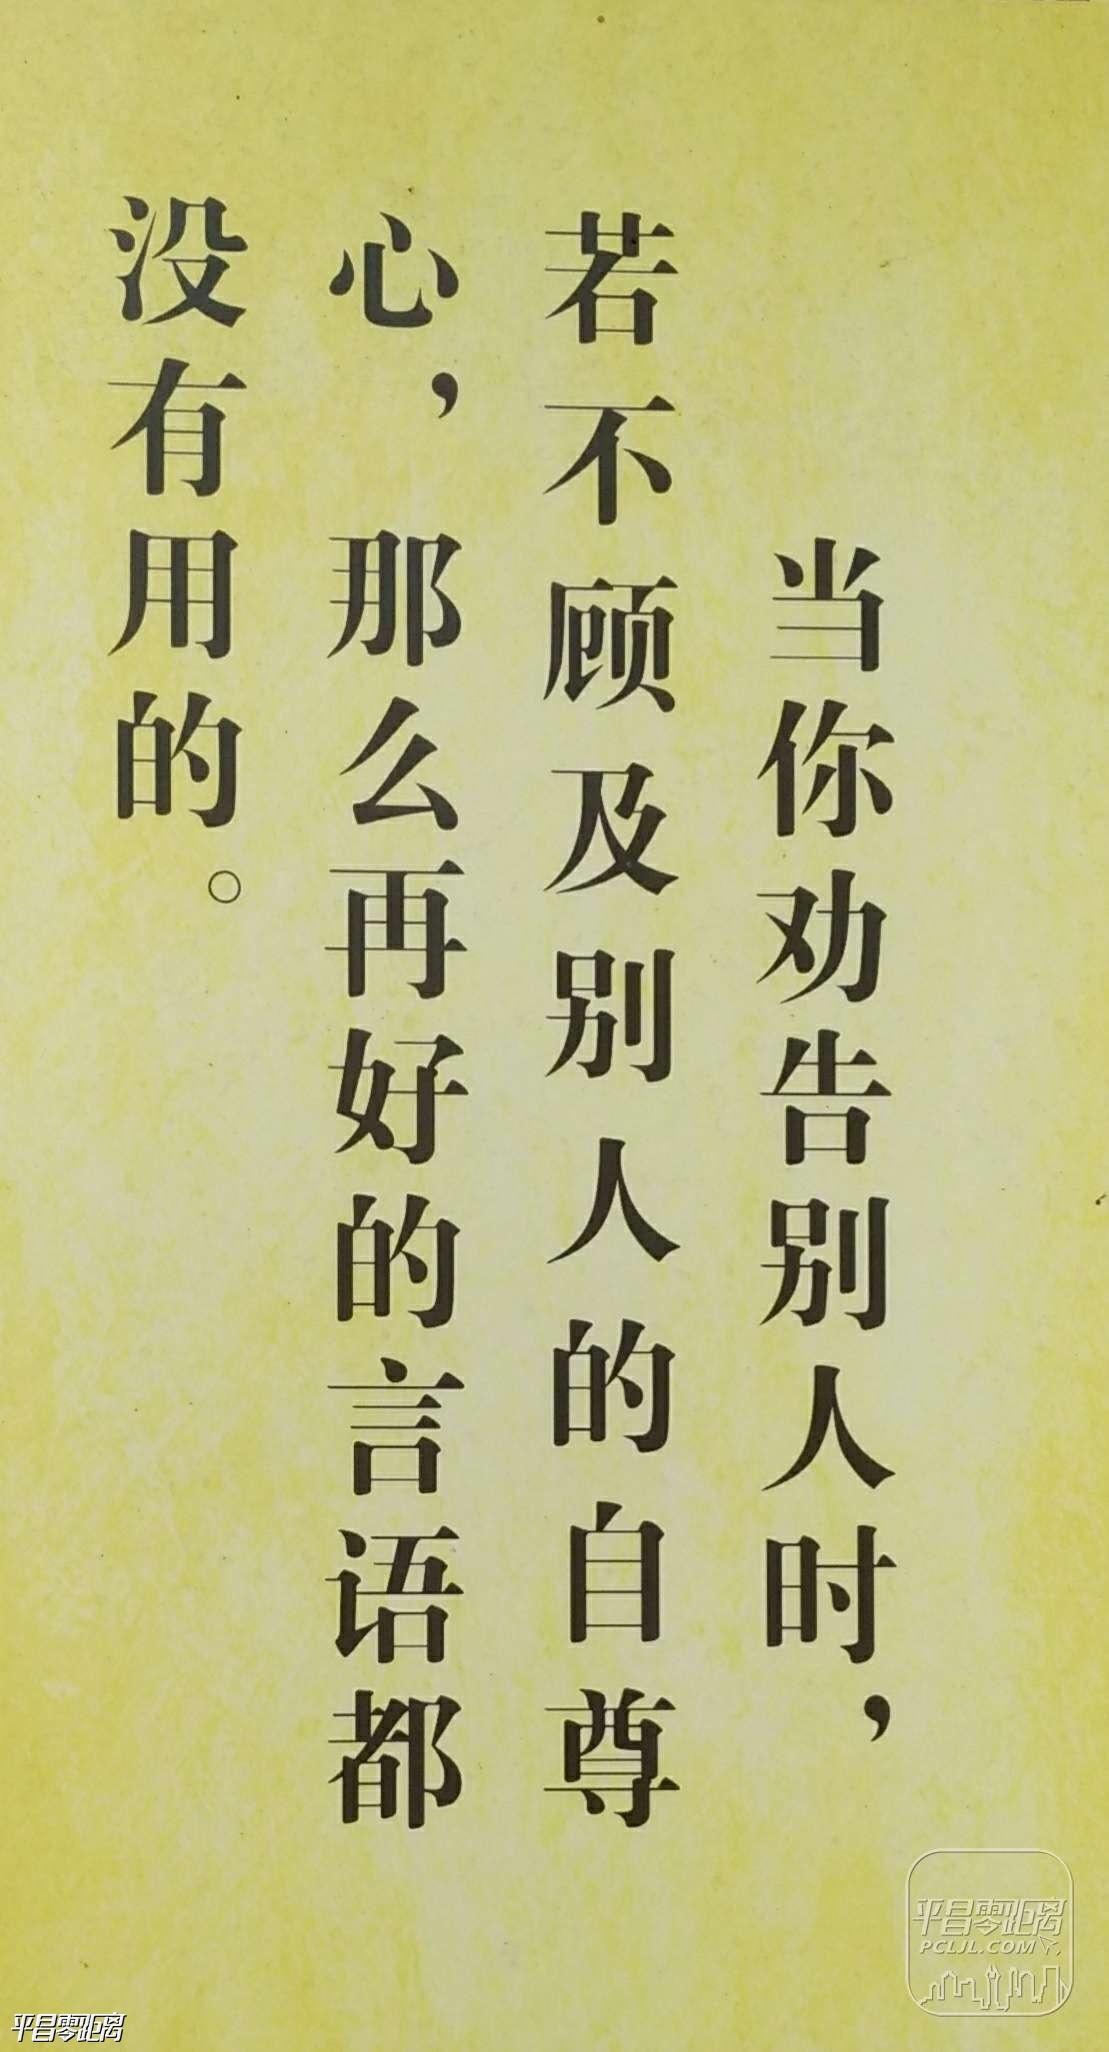 当你劝告别人时，
若不顾及别人的自尊
心，那么再好的言语都
没有用的。
平昌零距离
PCLJL.COM
平昌零距离